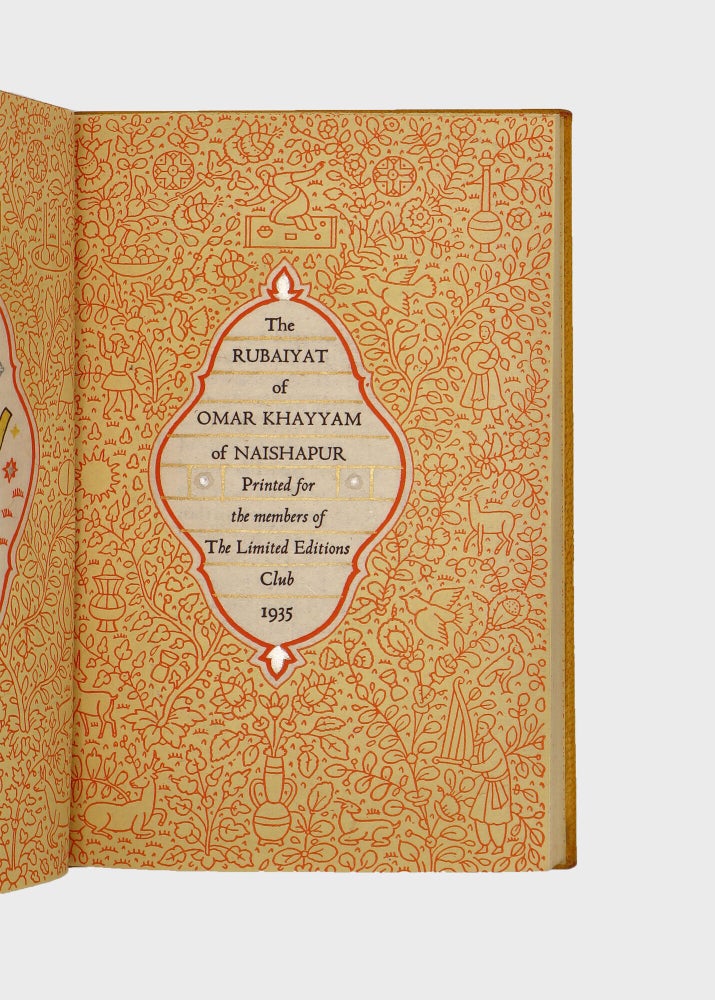 The
RUBAIYAT
of
OMAR KHAYYAM
of NAISHAPUR
Printed for
the members of
The Limited Editions
Club
1935